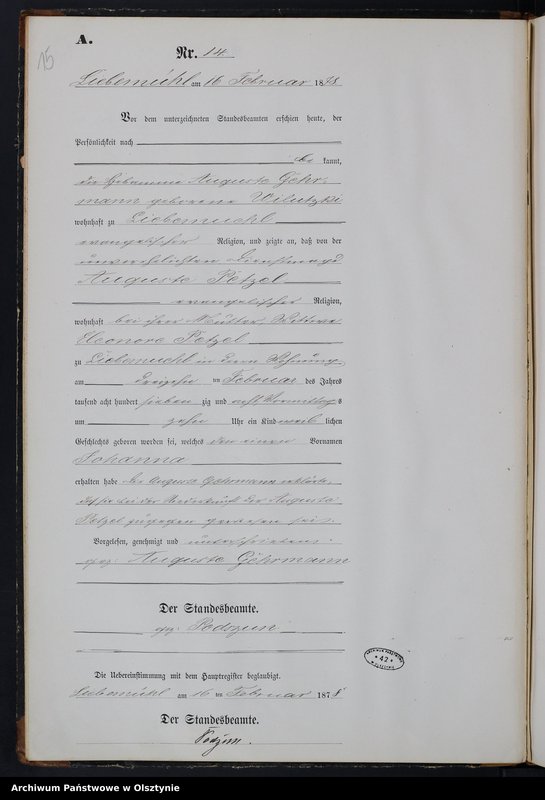 A.
15
Nr. 14
Liebemühl am 16 Februar 1878
Vor dem unterzeichneten Standesbeamten erschien heute, der
Persönlichkeit nach
be kannt,
die Hebamme Auguste Gehr-
mann geborene Wilutzki
wohnhaft zu Liebemuehl
evangelischer Religion, und zeigte an, daß von der
unverehelichten Dienstmagd
Auguste Petzel
evangelischer Religion,
wohnhaft bei ihrer Mutter, Wittwe
Eleonore Petzel
zu Liebemuehl in deren Wohnung
am dreizehn ten Februar des Jahres
tausend acht hundert sieben zig und acht Vormittags
um zehn Uhr ein Kind weib lichen
Geschlechts geboren worden sei, welches den einen Vornamen
Johanna
erhalten habe die Auguste Gehrmann erklärte,
daß sie bei der Niederkunft der Auguste
Petzel zugegen gewesen sei.
Vorgelesen, genehmigt und unterschrieben
gez: Auguste Gehrmann
Der Standesbeamte.
gez: Podszun
Die Uebereinstimmung mit dem Hauptregister beglaubigt.
Liebemühl am 16 ten Februar 1878
Der Standesbeamte.
Podszun.
* 42 *
Archiwum Państwowe w Olsztynie